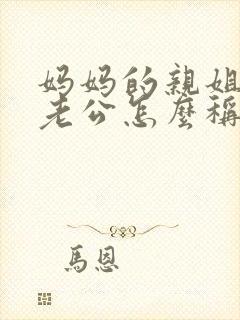 妈妈的親姐
老公怎麼稱
馬恩